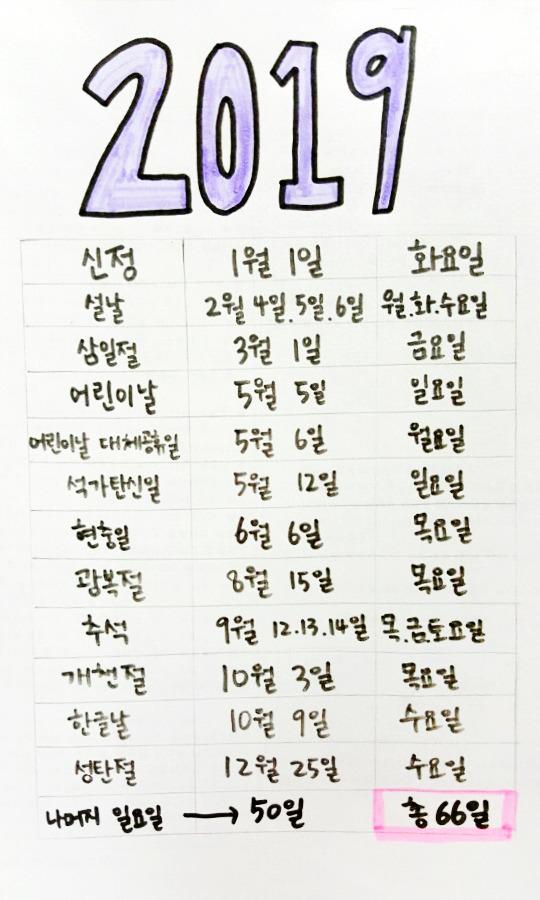 2019
신정 1월 1일 화요일
설날 2월 4일.5일.6일 월.화.수요일
삼일절 3월 1일 금요일
어린이날 5월 5일 일요일
어린이날 대체공휴일 5월 6일 월요일
석가탄신일 5월 12일 일요일
현충일 6월 6일 목요일
광복절 8월 15일 목요일
추석 9월 12.13.14일 목.금.토요일
개천절 10월 3일 목요일
한글날 10월 9일 수요일
성탄절 12월 25일 수요일
나머지 일요일 → 50일 총 66일